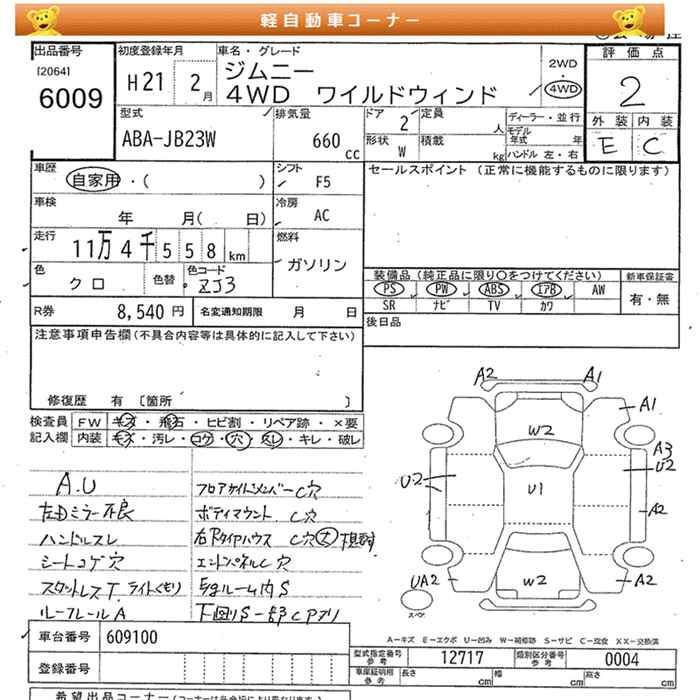 軽自動車コーナー
出品番号
[2064]
6009
初度登録年月
H21 2月
車名・グレード
ジムニー
4WD ワイルドウィンド
2WD
・
4WD
評価点
2
外装 内装
E C
型式
ABA-JB23W
排気量
660 CC
ドア 2
定員 人
形状 W
積載 kg
ディーラー・並行
モデル年式 年
ハンドル 左・右
車歴
自家用・( )
シフト
F5
セールスポイント (正常に機能するものに限ります)
車検
年 月( 日)
冷房
AC
走行
11万4千558km
燃料
ガソリン
色
クロ
色替
色コード
ZJ3
装備品 (純正品に限り〇をつけてください)
PS PW ABS エアB AW
SR ナビ TV カワ
新車保証書
有・無
R券 8,540円
名変通知期限 月 日
後日品
注意事項申告欄(不具合内容等は具体的に記入して下さい)
修復歴 有 〔箇所 〕
検査員記入欄
FW キズ・飛石・ヒビ割・リペア跡・×要
内装 キズ・汚レ・コゲ・穴・スレ・キレ・破レ
A.U
左Dミラー不良
ハンドルスレ
シートコゲ穴
スタットレスT.ライトくもり
ルーフレールA
フロアサイドメンバーC穴
ボディマウントC穴
右RタイヤハウスC穴大
エンドパネルC穴
下回りS一部Cアリ
A2 A1
A1
W2
A3
U2
U2
U1
A2
W2
UA2
A2
スペア
A-キズ E-エクボ U-凹み W-補修跡 S-サビ C-腐食 XX-交換済
車台番号 609100
登録番号
型式指定番号 参考 12717
類別区分番号 参考 0004
車庫証明用 参考 長さ cm 幅 cm 高さ cm
希望出品コーナー